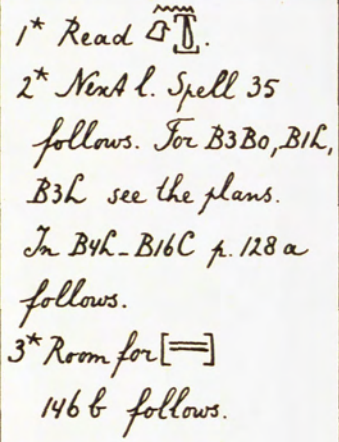 1* Read .
2* Next l. Spell 35
follows. For B3Bo, B1L,
B3L see the plans.
In B4L-B16C p. 128 a
follows.
3* Room for [=]
146 b follows.